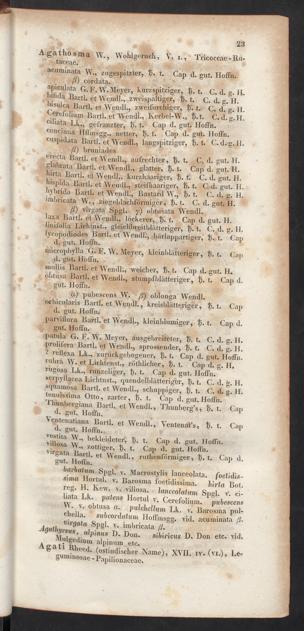 23
Agathosma W., Wohlgeruch, V. 1., Tricoceae-Ru-
taceae.
acuminata W., zugespitzter, ♄. t. Cap d. gut. Hoffn.
β) cordata.
apiculata G. F. W. Meyer, kurzspitziger, ♄. t. C. d. g. H.
bifida Bartl. et Wendl., zweispaltiger, ♄. t. C. d. g. H.
bisulca Bartl. et Wendl., zweifurchiger, ♄. t. C. d. g. H.
Cerefolium Bartl. et Wendl., Kerbel-W., ♄. t. C. d. g. H.
ciliata Lk., gefranzter, ♄. t. Cap d. gut. Hoffn.
concinna Hffnsgg., netter, ♄. t. Cap d. gut. Hoffn.
cuspidata Bartl. et Wendl., langspitziger, ♄. t. C. d. g. H.
β) bruniades
erecta Bartl. et Wendl., aufrechter, ♄. t. C. d. gut. H.
glabrata Bartl. et Wendl., glatter, ♄. t. Cap d. gut. H.
hirta Bartl. et Wendl., kurzhaariger, ♄. t. C. d. gut. H.
hispida Bartl. et Wendl., steifhaariger, ♄. t. C. d. gut. H.
hybrida Bartl. et Wendl., Bastard W., ♄. t. C. d. g. H.
imbricata W., ziegeldachförmiger, ♄. t. C. d. gut. H.
β) virgata Spgl. γ) obtusata Wendl.
laxa Bartl. et Wendl., lockerer, ♄. t. Cap d. gut. H.
linifolia Lichtnst., gleichbreitblätteriger, ♄. t. C. d. g. H.
lycopodioides Bartl. et Wendl., bärlappartiger, ♄. t. Cap
d. gut. Hoffn.
microphylla G. F. W. Meyer, kleinblätteriger, ♄. t. Cap
d. gut. Hoffn.
mollis Bartl. et Wendl., weicher, ♄. t. Cap d. gut. H.
obtusa Bartl. et Wendl., stumpfblätteriger, ♄. t. Cap
d. gut. Hoffn.
α) pubescens W. β) oblonga Wendl.
orbicularis Bartl. et Wendl., kreisblätteriger, ♄. t. Cap
d. gut. Hoffn.
parviflora Bartl. et Wendl., kleinblumiger, ♄. t. Cap d.
gut. Hoffn.
patula G. F. W. Meyer, ausgebreiteter, ♄. t. C. d. g. H.
prolifera Bartl. et Wendl., sprossender, ♄. t. C. d. g. H.
? reflexa Lk., zurückgebogener, ♄. t. Cap d. gut. Hoffn.
rubra W. et Lichtenst., röthlicher, ♄. t. Cap d. g. H.
rugosa Lk., runzeliger, ♄. t. Cap d. gut. Hoffn.
serpyllacea Lichtnst., quendelblätteriger, ♄. t. C. d. g. H.
squamosa Bartl. et Wendl., schuppiger, ♄. t. C. d. g. H.
tenuissima Otto., zarter, ♄. t. Cap d. gut. Hoffn.
Thunbergiana Bartl. et Wendl., Thunberg's, ♄. t. Cap
d. gut. Hoffn.
Ventenatiana Bartl. et Wendl., Ventenat's, ♄. t. Cap
d. gut. Hoffn.
vestita W., bekleideter, ♄. t. Cap d. gut. Hoffn.
villosa W., zottiger, ♄. t. Cap d. gut. Hoffn.
virgata Bartl. et Wendl., ruthenförmiger, ♄. t. Cap d.
gut. Hoffn.
barbatum Spgl. v. Macrostylis lanceolata. foetidis-
sima Hortul. v. Barosma foetidissima. hirta Bot.
reg. H. Kew. v. villosa. lanceolatum Spgl. v. ci-
liata Lk. patens Hortul v. Cerefolium. pubescens
W. v. obtusa α. pulchellum Lk. v. Barosma pul-
chella. subcordatum Hoffnsgg. vid. acuminata β.
virgata Spgl. v. imbricata β.
Agathyrsus, alpinus D. Don. sibiricus D. Don etc. vid.
Mulgedium alpinum etc.
Agati Rheed. (ostindischer Name), XVII. IV. (VI.), Le-
guminosae-Papilionaceae.